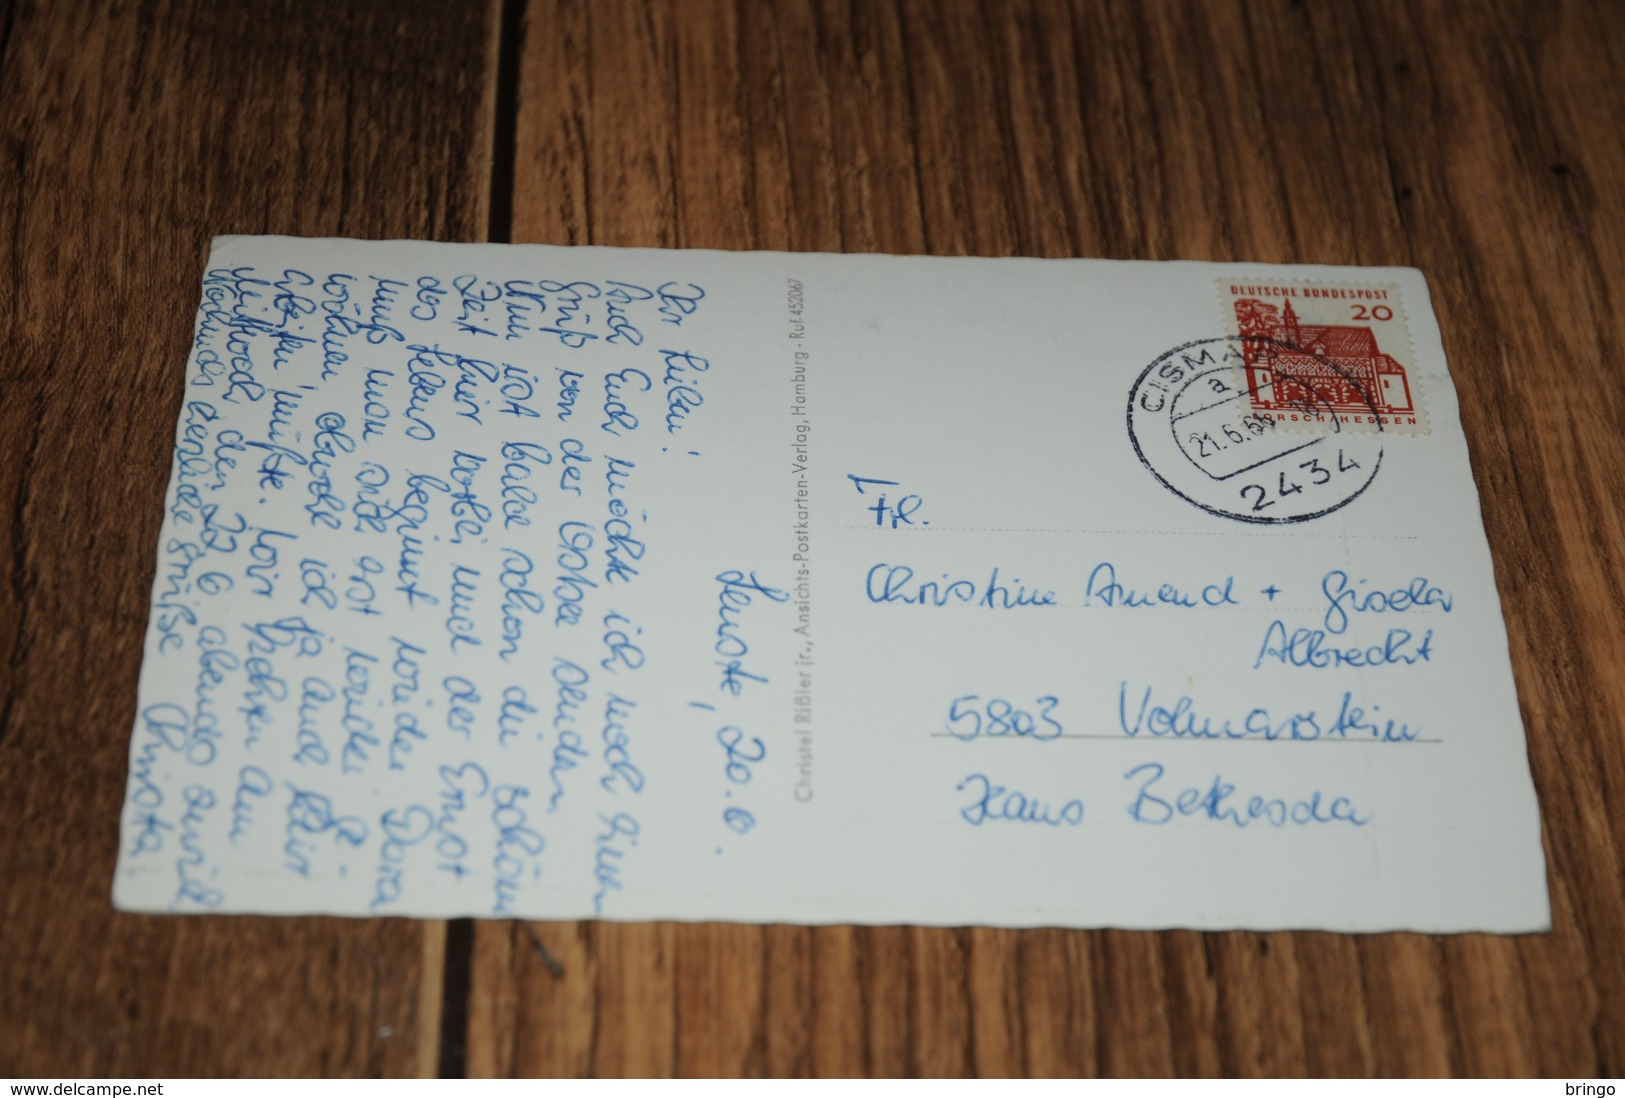 Lenste, 20.6.
Ihr Lieben!
Auch Euch möchte ich noch einen
Gruß von der Ostsee senden.
Nun ist bald schon die schöne
Zeit hier vorbei und der Ernst
des Lebens beginnt wieder. Daran
muß man sich erst wieder ge-
wöhnen obwohl ich ja auch hier
arbeiten mußte. Wir fahren am
Mittwoch, den 22.6 abends zurück
herzliche Grüße Christa.
Christel Rißler jr., Ansichts-Postkarten-Verlag, Hamburg · Ruf: 452067
DEUTSCHE BUNDESPOST
20
LORSCH/HESSEN
CISMAR
a
21.6.66
2434
Frl.
Christine Amend + Gisela
Albrecht
5803 Volmarstein
Haus Bethesda
www.delcampe.net
bringo